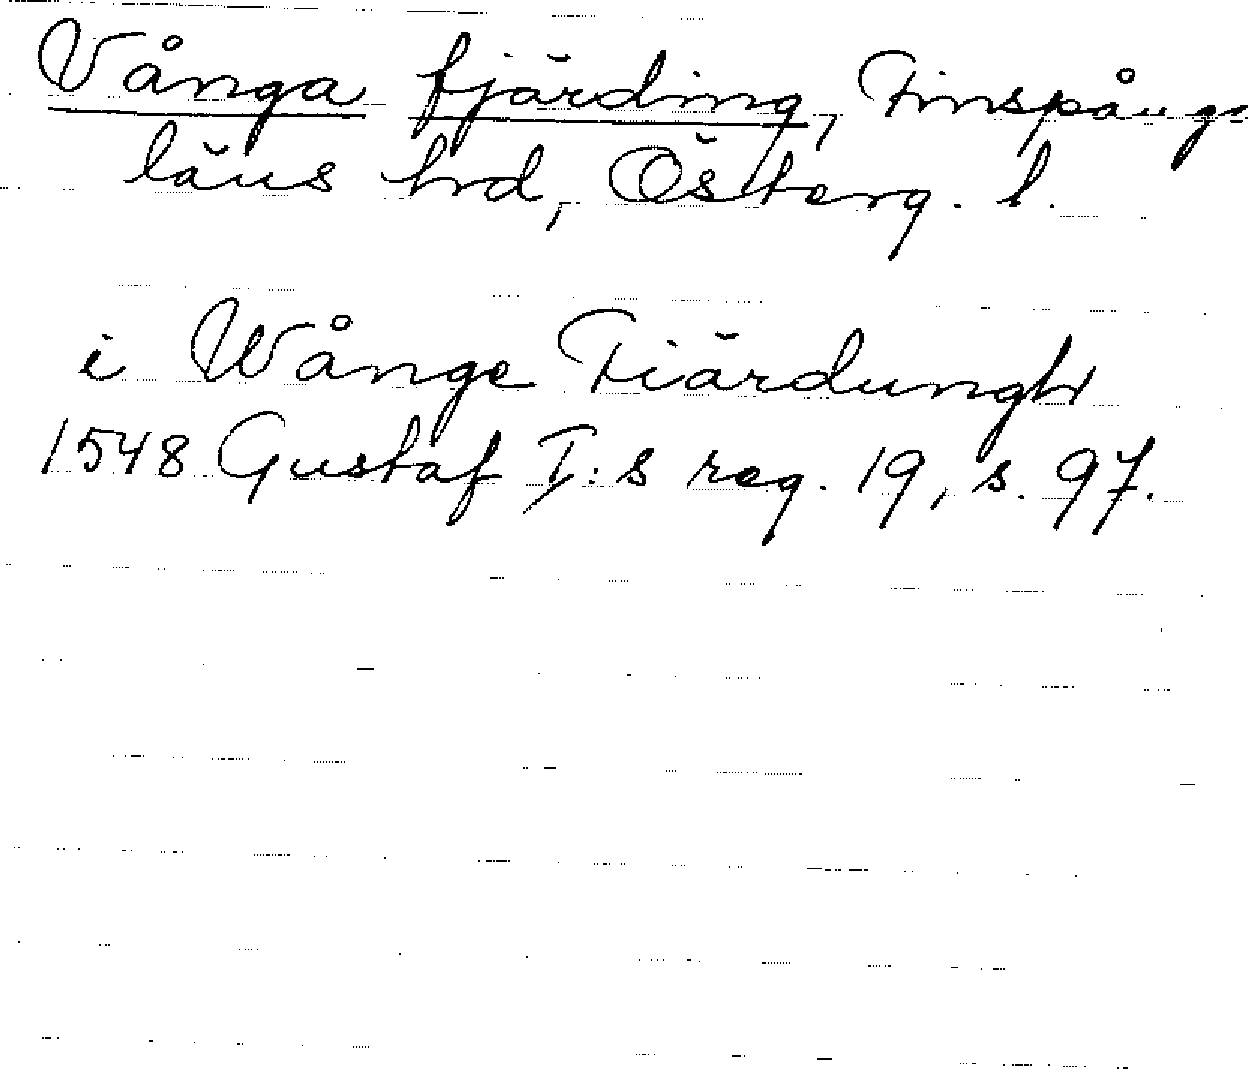 Vånga fjärding, Finspångs
läns hrd, Österg. l.
i Wånge Fiärdungh
1548 Gustaf I:s reg. 19, s. 97.